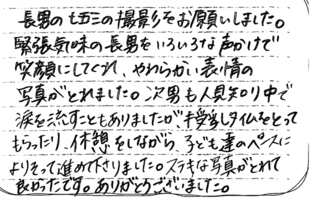 長男の七五三の撮影をお願いしました。
緊張気味の長男をいろいろな声かけで
笑顔にしてくれ、やわらかい表情の
写真がとれました。次男も人見知り中で
涙を流すこともありましたが、抱っこしタイムをとって
もらったり、休憩をしながら、子ども達のペースに
よりそって進めて下さりました。ステキな写真がとれて
良かったです。ありがとうございました。